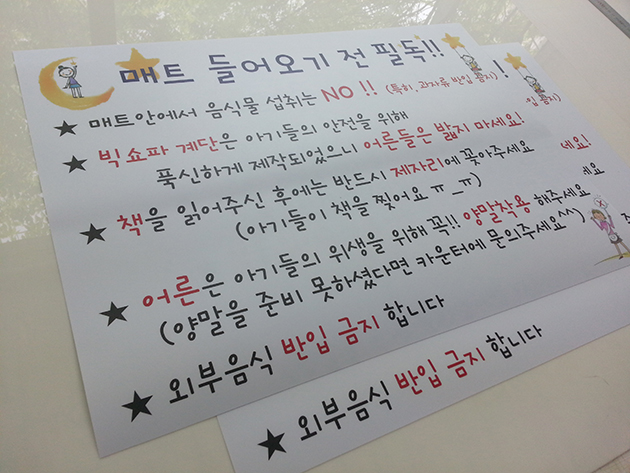 매트 들어오기 전 필독!!
★ 매트안에서 음식물 섭취는 NO !! (특히, 과자류 반입 금지)
★ 빅 쇼파 계단은 아기들의 안전을 위해
푹신하게 제작되었으니 어른들은 밟지 마세요!
★ 책을 읽어주신 후에는 반드시 제자리에 꽂아주세요
(아기들이 책을 찢어요 ㅠ_ㅠ)
★ 어른은 아기들의 위생을 위해 꼭!! 양말착용 해주세요
(양말을 준비 못하셨다면 카운터에 문의주세요^^)
★ 외부음식 반입 금지 합니다
!
입 금지)
세요!
세요
★ 외부음식 반입 금지 합니다